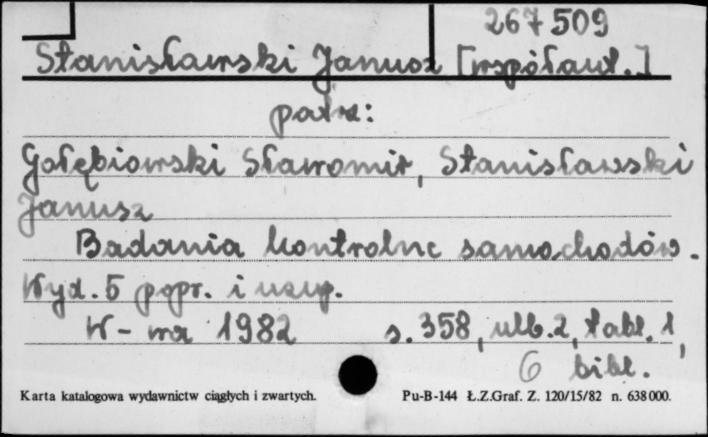 267509
Stanisławski Janusz [współaut.]
patrz:
Gołębiowski Sławomir, Stanisławski
Janusz
Badania kontrolne samochodów.
Wyd. 5 popr. i uzup.
W-wa 1982 s. 358, nlb. 2, tabl. 1,
6 bibl.
Karta katalogowa wydawnictw ciągłych i zwartych. Pu-B-144 Ł.Z.Graf. Z. 120/15/82 n. 638000.